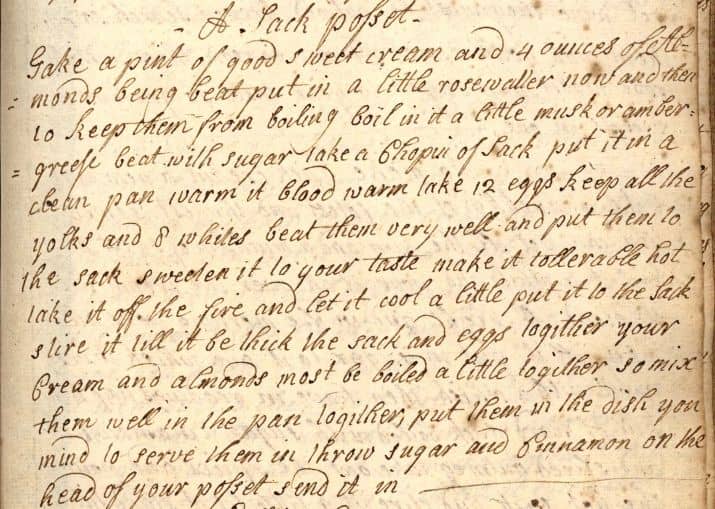 - A Sack posset -
Take a pint of good sweet cream and 4 ounces of Al-
= monds being beat put in a little rosewatter now and then
to keep them from boiling boil in it a little musk or amber-
= greese beat with sugar take a Chopin of Sack put it in a
clean pan warm it blood warm take 12 eggs keep all the
yolks and 8 whites beat them very well and put them to
the sack sweeten it to your taste make it tollerable hot
take it off the fire and let it cool a little put it to the Sack
stire it till it be thick the sack and eggs togither your
Cream and almonds most be boiled a little togither so mix
them well in the pan togither, put them in the dish you
mind to serve them in throw sugar and Cinnamon on the
head of your posset send it in